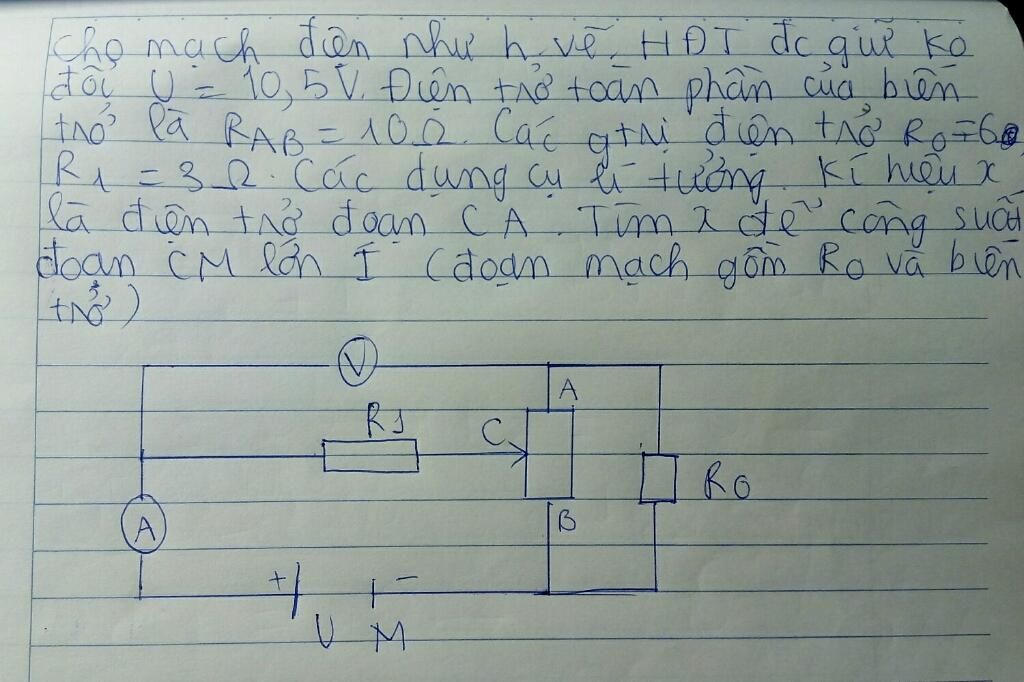 Cho mạch điện như h.vẽ, HĐT đc giữ ko
đổi U = 10,5V. Điện trở toàn phần của biến
trở là RAB = 10Ω. Các gtrị điện trở R0 = 6
R1 = 3Ω. Các dụng cụ lí tưởng. Kí hiệu x
là điện trở đoạn CA. Tìm x để công suất
đoạn CM lớn I (đoạn mạch gồm R0 và biến
trở)
V
A
R1
C
R0
A
B
+
-
U M